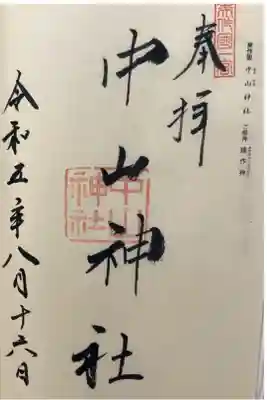 美作國一宮
美作国 中山神社 ご祭神 鏡作神
奉拝
中山神社
中山神社
令和五年八月十六日